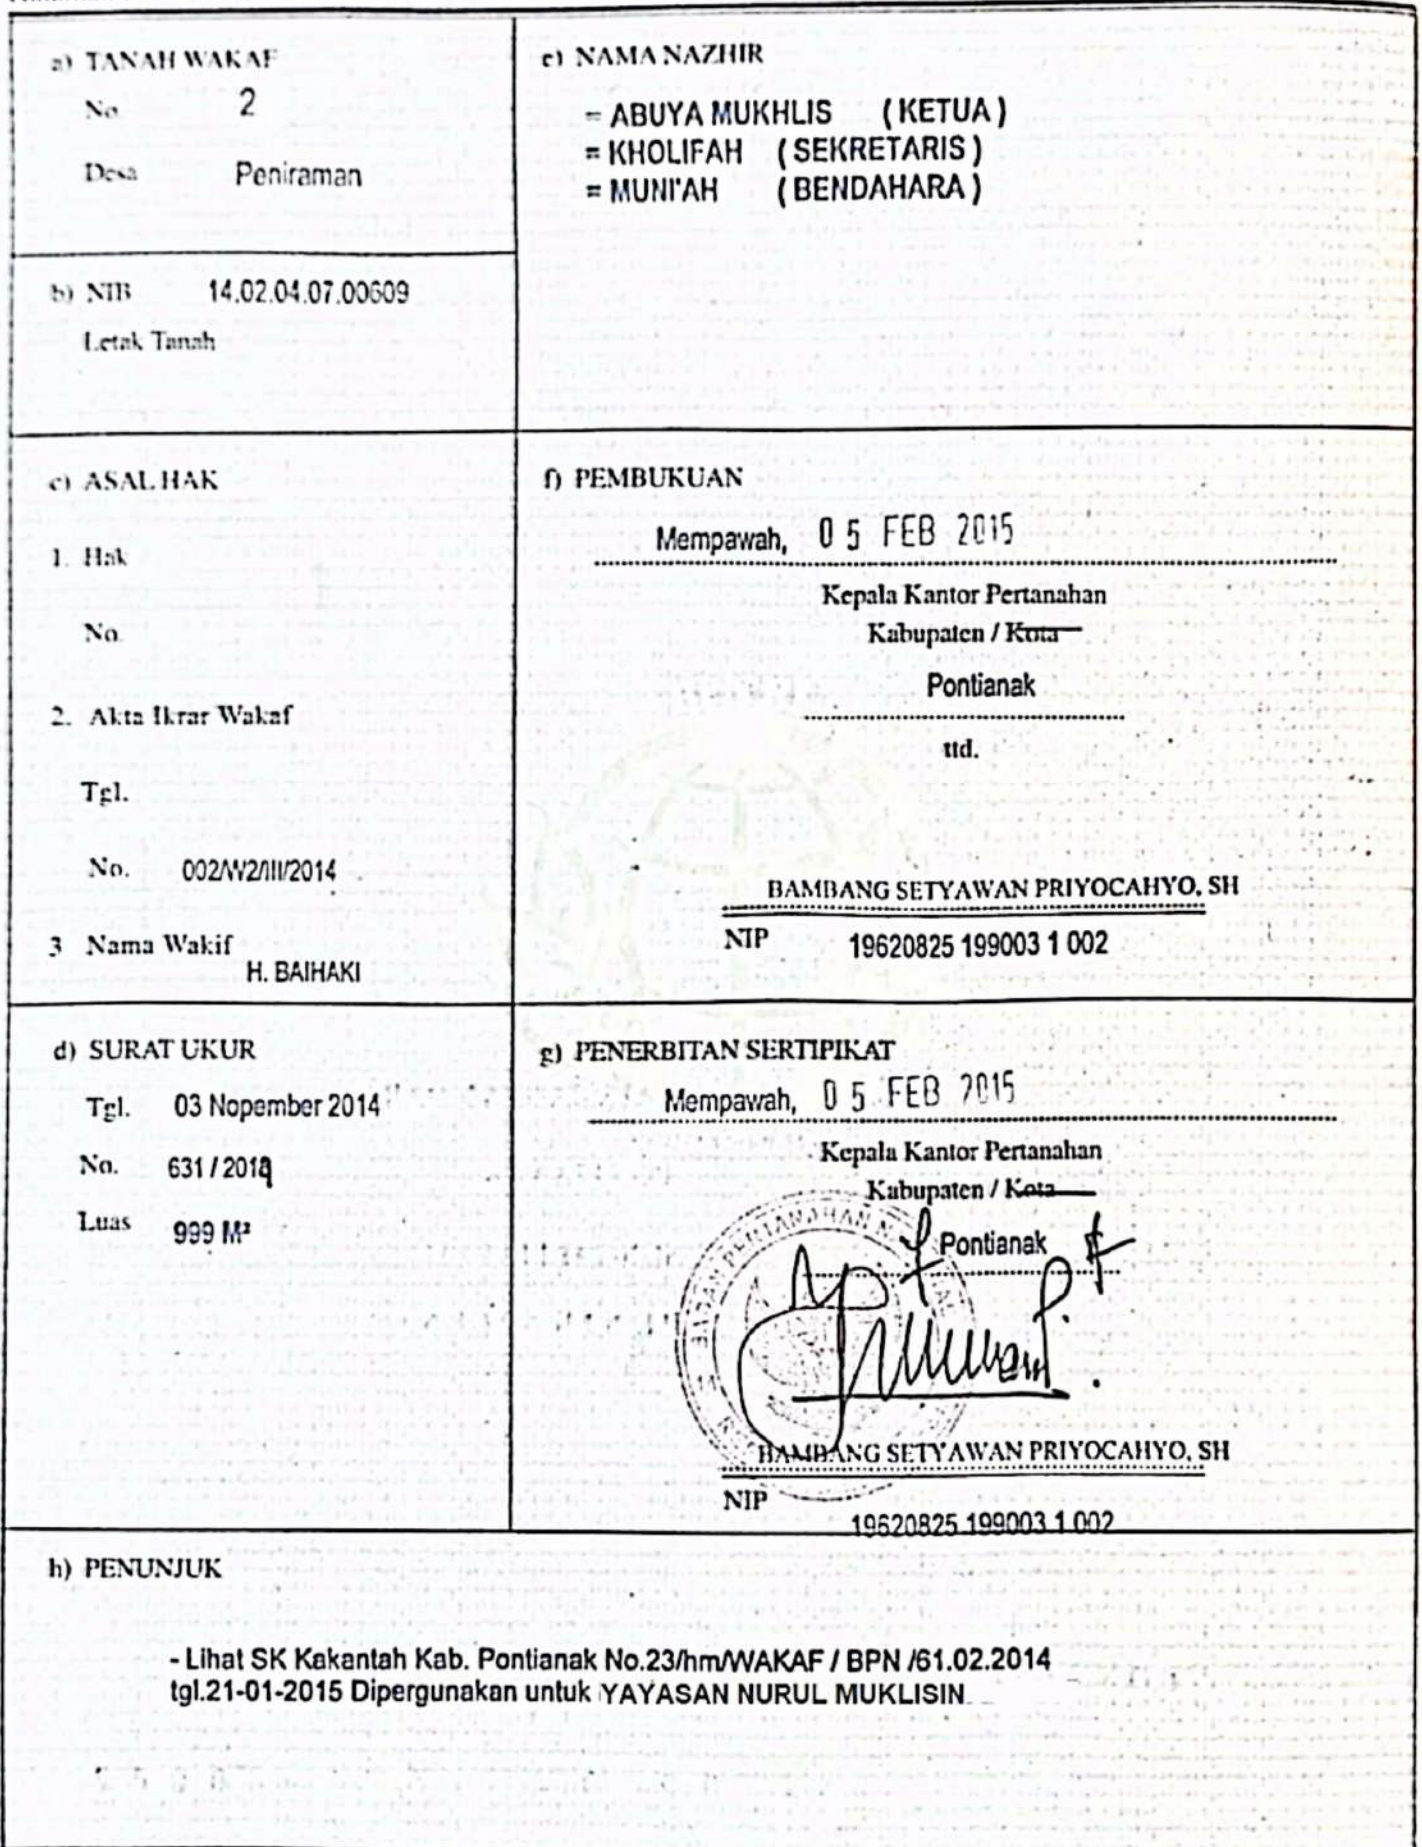 a) TANAH WAKAF
No. 2
Desa Peniraman
b) NIB 14.02.04.07.00609
Letak Tanah
c) ASAL HAK
1. Hak
No.
2. Akta Ikrar Wakaf
Tgl.
No. 002/W2/III/2014
3 Nama Wakif
H. BAIHAKI
d) SURAT UKUR
Tgl. 03 Nopember 2014
No. 631 / 2014
Luas 999 M²
e) NAMA NAZHIR
= ABUYA MUKHLIS ( KETUA )
= KHOLIFAH ( SEKRETARIS )
= MUNI'AH ( BENDAHARA )
f) PEMBUKUAN
Mempawah, 05 FEB 2015
Kepala Kantor Pertanahan
Kabupaten / Kota
Pontianak
ttd.
BAMBANG SETYAWAN PRIYOCAHYO, SH
NIP 19620825 199003 1 002
g) PENERBITAN SERTIPIKAT
Mempawah, 05 FEB 2015
Kepala Kantor Pertanahan
Kabupaten / Kota
Pontianak
BAMBANG SETYAWAN PRIYOCAHYO, SH
NIP
19620825 199003 1 002
h) PENUNJUK
- Lihat SK Kakantah Kab. Pontianak No.23/hm/WAKAF / BPN /61.02.2014
tgl.21-01-2015 Dipergunakan untuk YAYASAN NURUL MUKLISIN